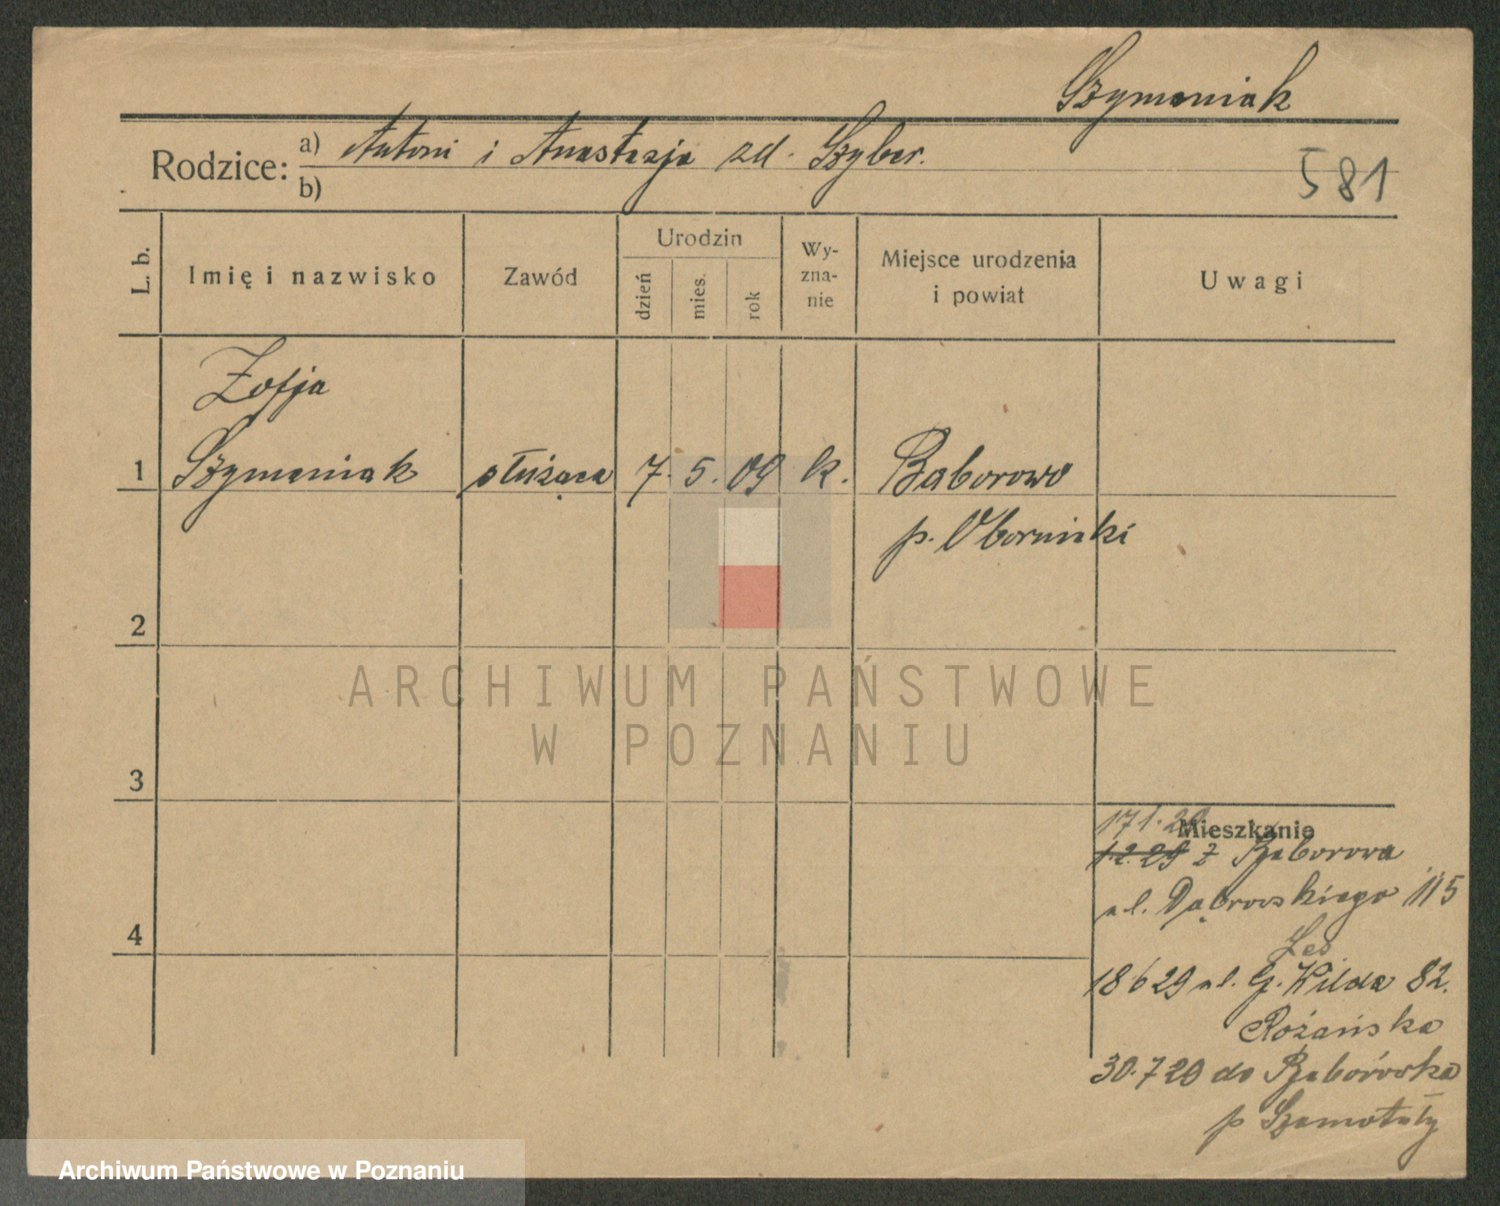 Szymoniak
Rodzice: a) Antoni i Anastazja zd. Szyber.
b)
581
L. b.
Imię i nazwisko
Zawód
Urodzin
dzień
mies.
rok
Wy-
zna-
nie
Miejsce urodzenia
i powiat
Uwagi
Zofja
1 Szymaniak służąca 7. 5. 09 k. Baborowo
p. Obornicki
2
ARCHIWUM PAŃSTWOWE
W POZNANIU
3
Mieszkanie
17 1. 29
1.2.29 z Baborowa
ul. Dąbrowskiego 115
4
18 6 29 ul. G. Wilda 82.
Różańska
30.7 29 do Baborówka
p Szamotuły
Archiwum Państwowe w Poznaniu